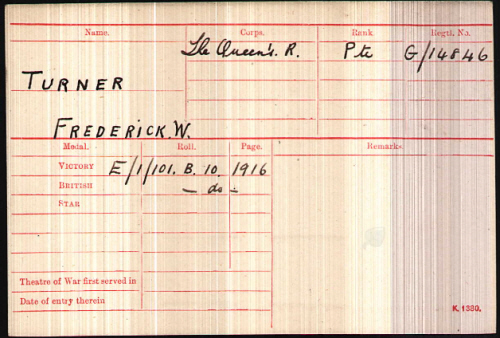 Name. Corps. Rank Regtl. No.
The Queen's. R. Pte G/14846
TURNER
FREDERICK.W.
Medal. Roll. Page. Remarks
VICTORY E/1/101. B. 10. 1916
BRITISH — do —
STAR
Theatre of War first served in
Date of entry therein
K. 1380.